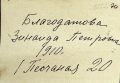 Благодатова
Зинаида Петровна
1910.
1 Песчаная 20